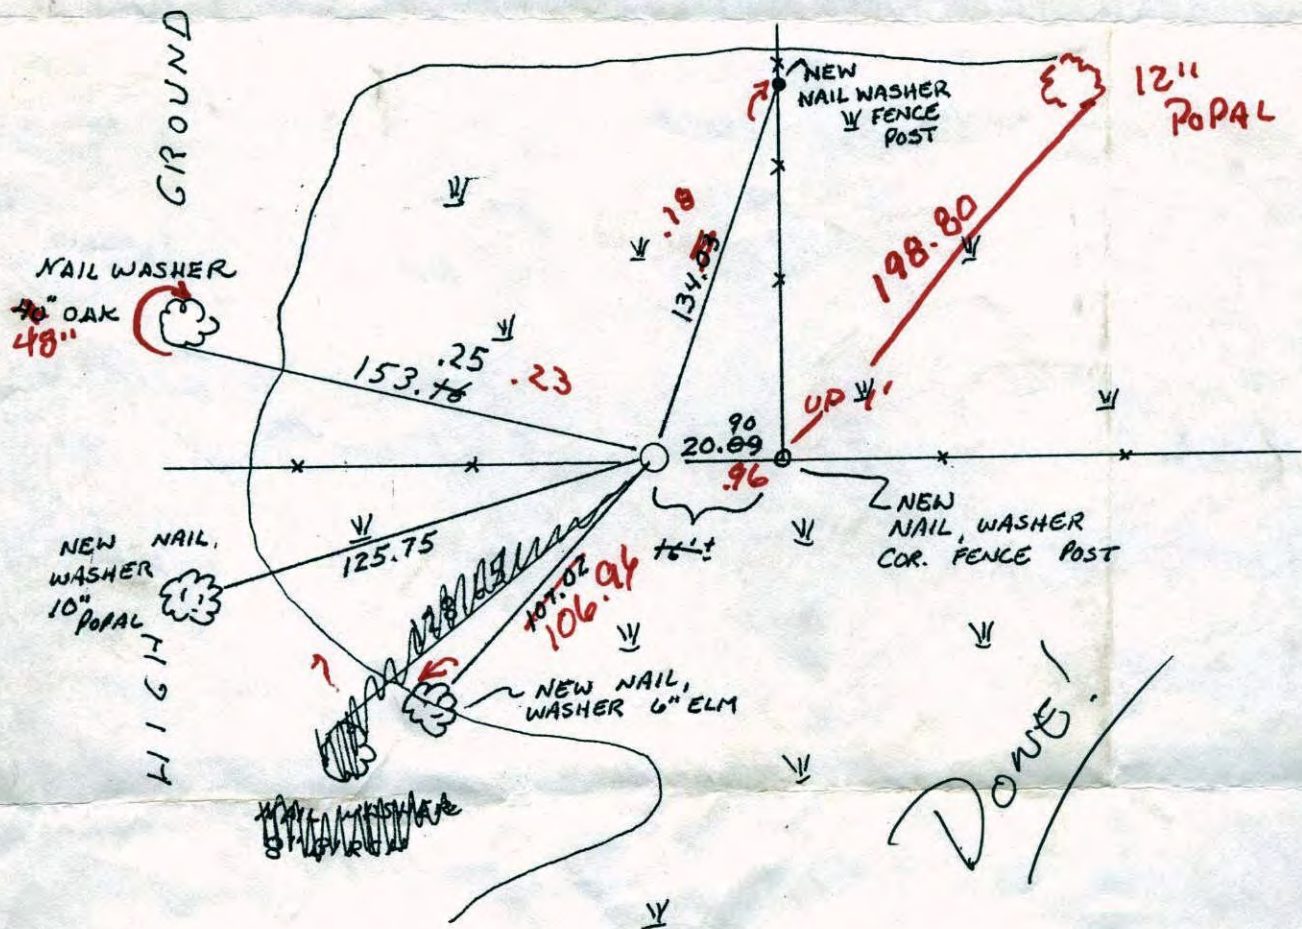 GROUND
NEW
NAIL WASHER
FENCE
POST
12"
POPAL
.18
134.03
198.80
NAIL WASHER
40" OAK
48"
.25
153.16 .23
UP 1'
90
20.09
.96
16'±
NEW
NAIL, WASHER
COR. FENCE POST
NEW NAIL,
WASHER
10"
POPAL
125.75
107.02
106.94
?
NEW NAIL,
WASHER 6" ELM
HIGH
DONE!